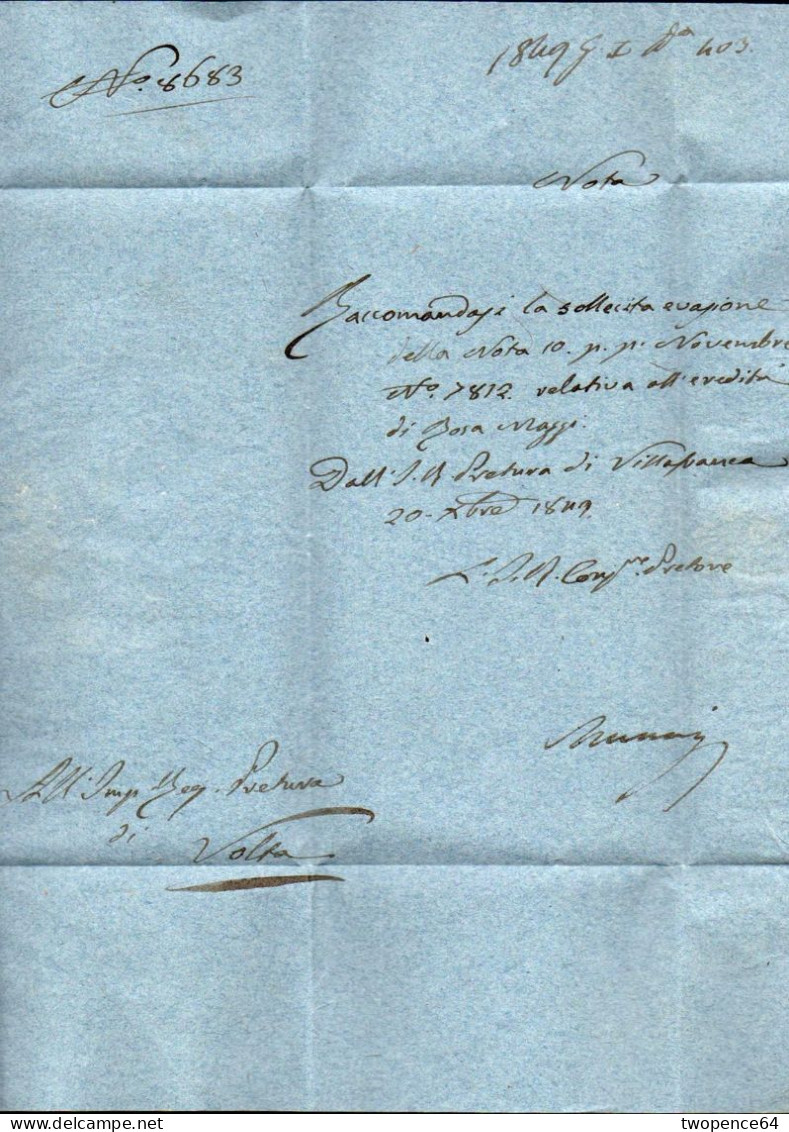 No. 8683
1849 I 403.
Nota
Raccomandasi la sollecita evasione
della Nota 10. p. p. Novembre
No. 7812. relativa all'eredità
di Rosa Maggi.
Dall'I. R. Pretura di Villafranca
20. Xbre 1849
L'I. R. Consre. Pretore
All'Imp. Reg. Pretura
di
Volta
twopence64